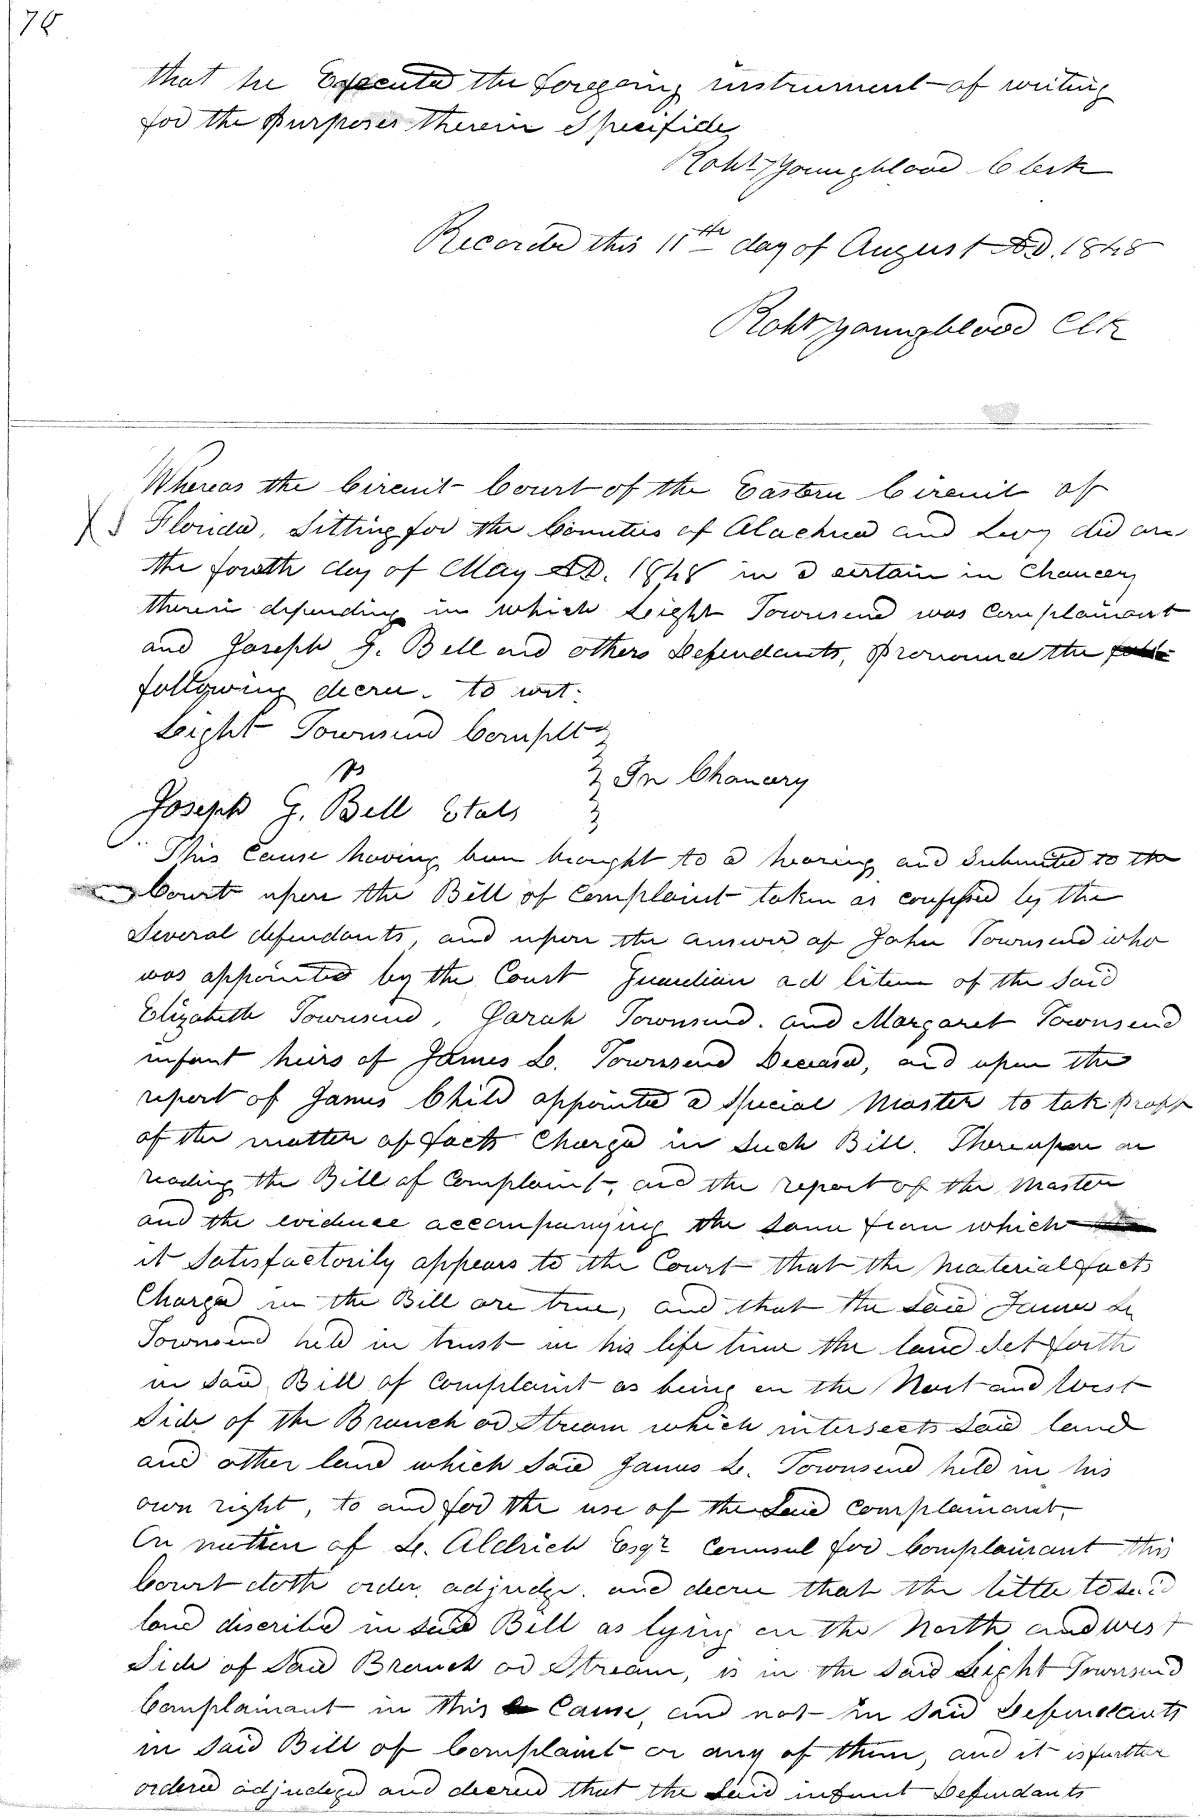 78
that he Executed the foregoing instrument of writing
for the Purposes therein Specifide
Robt Youngblood Clerk
Recorded this 11th day of August AD. 1848
Robt Youngblood Clk
Whereas the Circuit Court of the Eastern Circuit of
Florida, Sitting for the Counties of Alachua and Levy did on
the fourth day of May AD. 1848 in a certain in Chancery
therein depending in which Light Townsend was complainant
and Joseph G. Bell and others Defendants, Pronounce the
following decree. to wit:
Light Townsend Complt
vs
In Chancery
Joseph G. Bell Etals
This Cause having been brought to a hearing and Submitted to the
Court upon the Bill of Complaint taken as confessed by the
Several defendants, and upon the answer of John Townsend who
was appointed by the Court Guardian ad litem of the Said
Elizabeth Townsend, Sarah Townsend. and Margaret Townsend
infant heirs of James L. Townsend Deceased, and upon the
report of James Child appointed a Special Master to take proof
of the matter of facts Charged in Such Bill. Thereupon on
reading the Bill of Complaint, and the report of the Master
and the evidence accompanying the same from which
it Satisfactorily appears to the Court that the Material facts
Charged in the Bill are true, and that the Said James L
Townsend held in trust in his life time the land Set forth
in Said Bill of Complaint as being on the Nort and West
Side of the Branch or Stream which intersects Said land
and other land which Said James L. Townsend held in his
own right, to and for the use of the Said complainant,
On motion of L. Aldrich Esqr Counsul for Complainant this
Court doth order, adjudge. and decree that the tittle to said
land discribed in said Bill as lying on the North and west
Side of Said Branch or Stream, is in the Said Light Townsend
Complainant in this Cause, and not in Said Defendants
in Said Bill of Complaint or any of them, and it is further
ordered adjudged and decreed that the Said infant Defendants